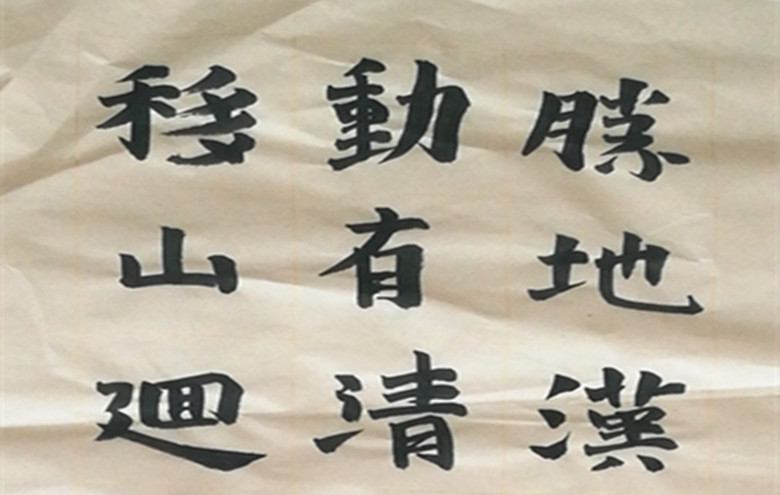 勝地漢
動有清
移山廻